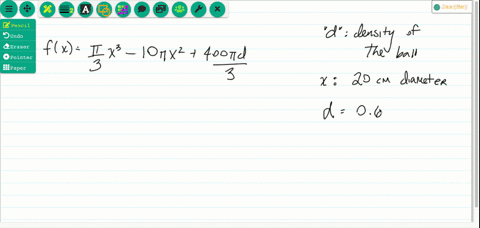 Pencil
Undo
Eraser
Pointer
Paper
f(x) = π/3 x³ − 10πx² + 400πd/3
"d": density of
the ball
x: 20 cm diameter
d = 0.6